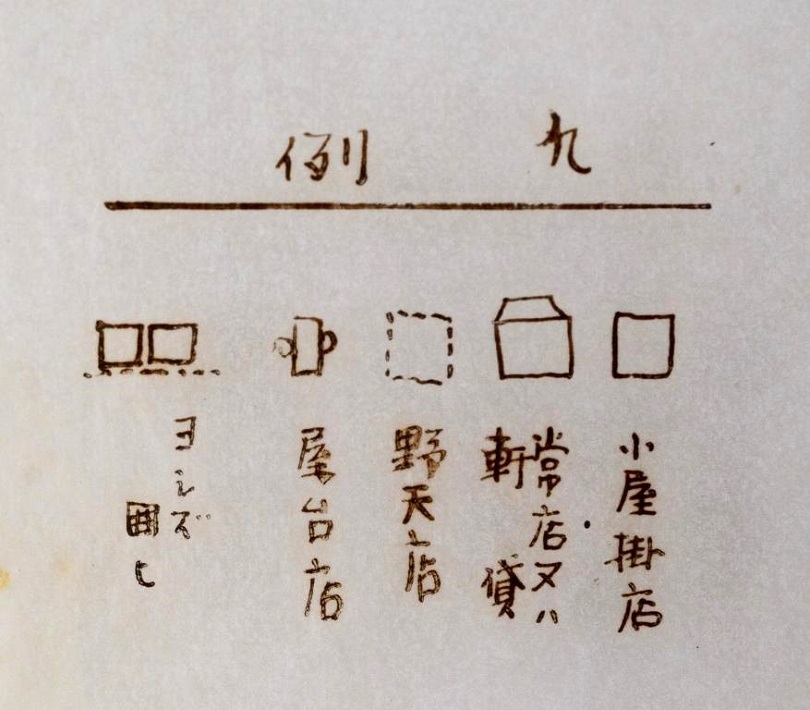 凡例
小屋掛店
常店又ハ
軒貸
野天店
屋台店
ヨシズ
囲ヒ